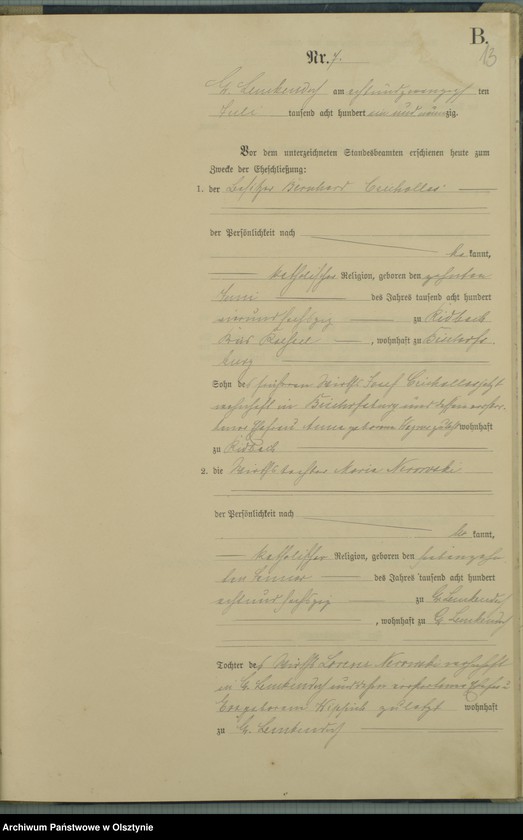 B.
13
Nr. 7.
Gr. Lemkendorf am achtundzwanzigsten
Juli tausend acht hundert ein und neunzig.
Vor dem unterzeichneten Standesbeamten erschienen heute zum
Zwecke der Eheschließung:
1. der Besitzer Bernhard
der Persönlichkeit nach
be kannt,
katholischer Religion, geboren den zehnten
Juni des Jahres tausend acht hundert
vierundsechzig zu Ridbach
Kreis Roessel, wohnhaft zu Bischofs-
burg
Sohn des früheren Wirths Josef jetzt
wohnhaft in Bischofsburg und dessen verstor-
benen Ehefrau Anna geborene wohnhaft
zu Ridbach
2. die Wirthstochter Maria Nerowski
der Persönlichkeit nach
be kannt,
katholischer Religion, geboren den siebenzehn-
ten Januar des Jahres tausend acht hundert
achtundsechzig zu Gr. Lemkendorf
, wohnhaft zu Gr. Lemkendorf
Tochter des Wirths Lorenz Nerowski wohnhaft
in Gr. Lemkendorf und dessen verstorbenen Ehefrau
geborenen zuletzt wohnhaft
zu Gr. Lemkendorf
Archiwum Państwowe w Olsztynie